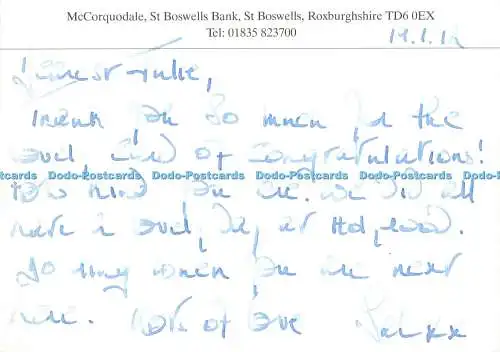 McCorquodale, St Boswells Bank, St Boswells, Roxburghshire TD6 0EX
Tel: 01835 823700
19.1.12
Dearest Julie,
Thank you so much for the
lovely card of Congratulations!
Dodo-Postcards Dodo-Postcards Dodo-Postcards Dodo-Postcards Dodo-Postcards
How kind you are. We did all
have a lovely day at Holyrood.
Do ring when you are next
here. Lots of love